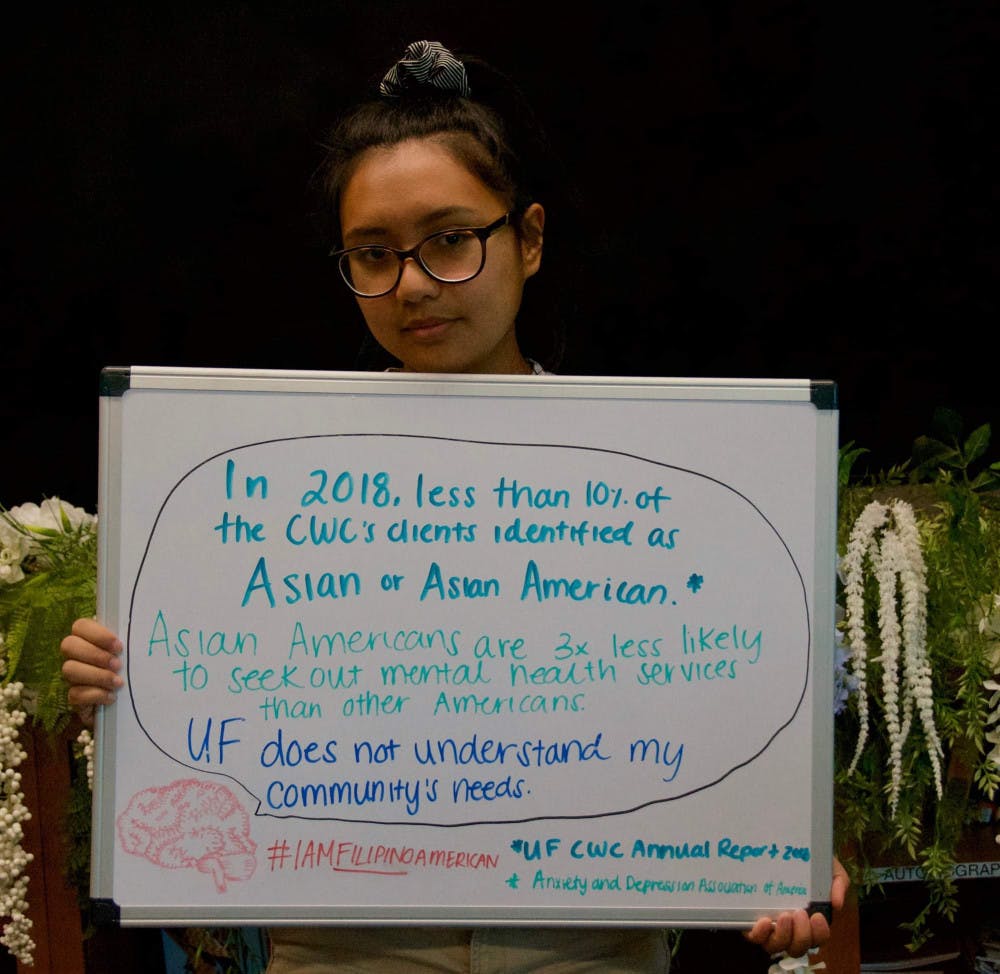 In 2018, less than 10% of
the CWC's clients identified as
Asian or Asian American.*
Asian Americans are 3x less likely
to seek out mental health services
than other Americans.
UF does not understand my
community's needs.
#IAMFILIPINOAMERICAN
*UF CWC Annual Report 2018
* Anxiety and Depression Association of America
AUTO
GRAP